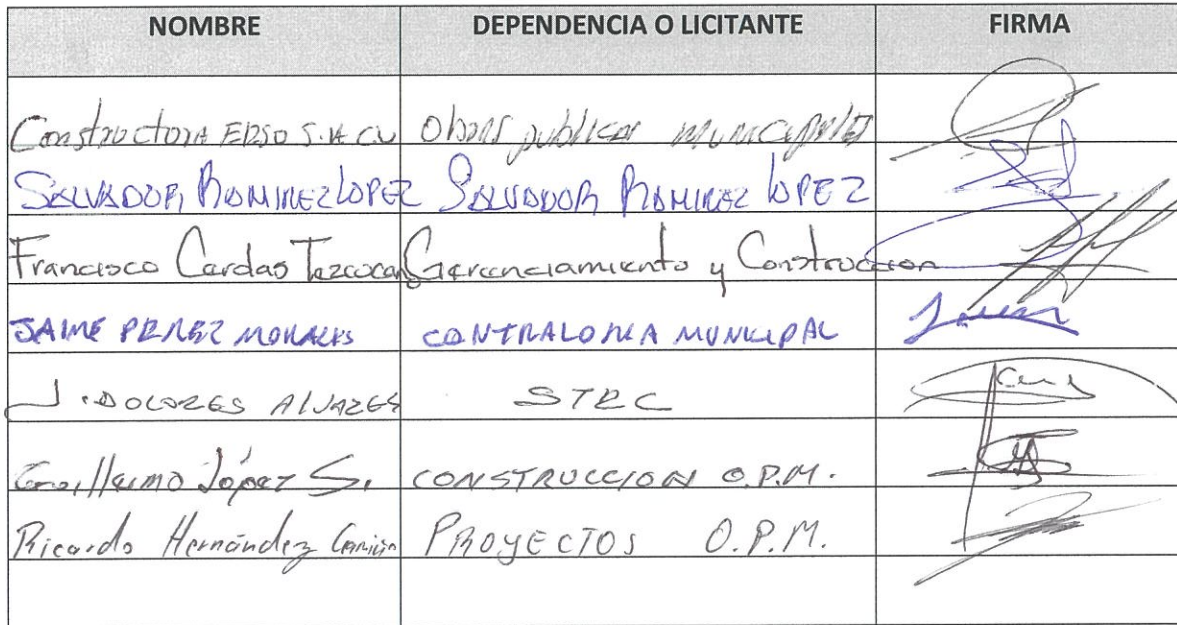 NOMBRE DEPENDENCIA O LICITANTE FIRMA
Constructora EDSO S.A. C.V Obras publicas municipales
SALVADOR RAMIREZ LOPEZ SALVADOR RAMIREZ LOPEZ
Francisco Cerdas Gerenciamiento y Construccion
JAIME PEREZ MORALES CONTRALORIA MUNICIPAL
J. DOLORES ALVAREZ STRC
Guillermo López S. CONSTRUCCION O.P.M.
Ricardo Hernández PROYECTOS O.P.M.